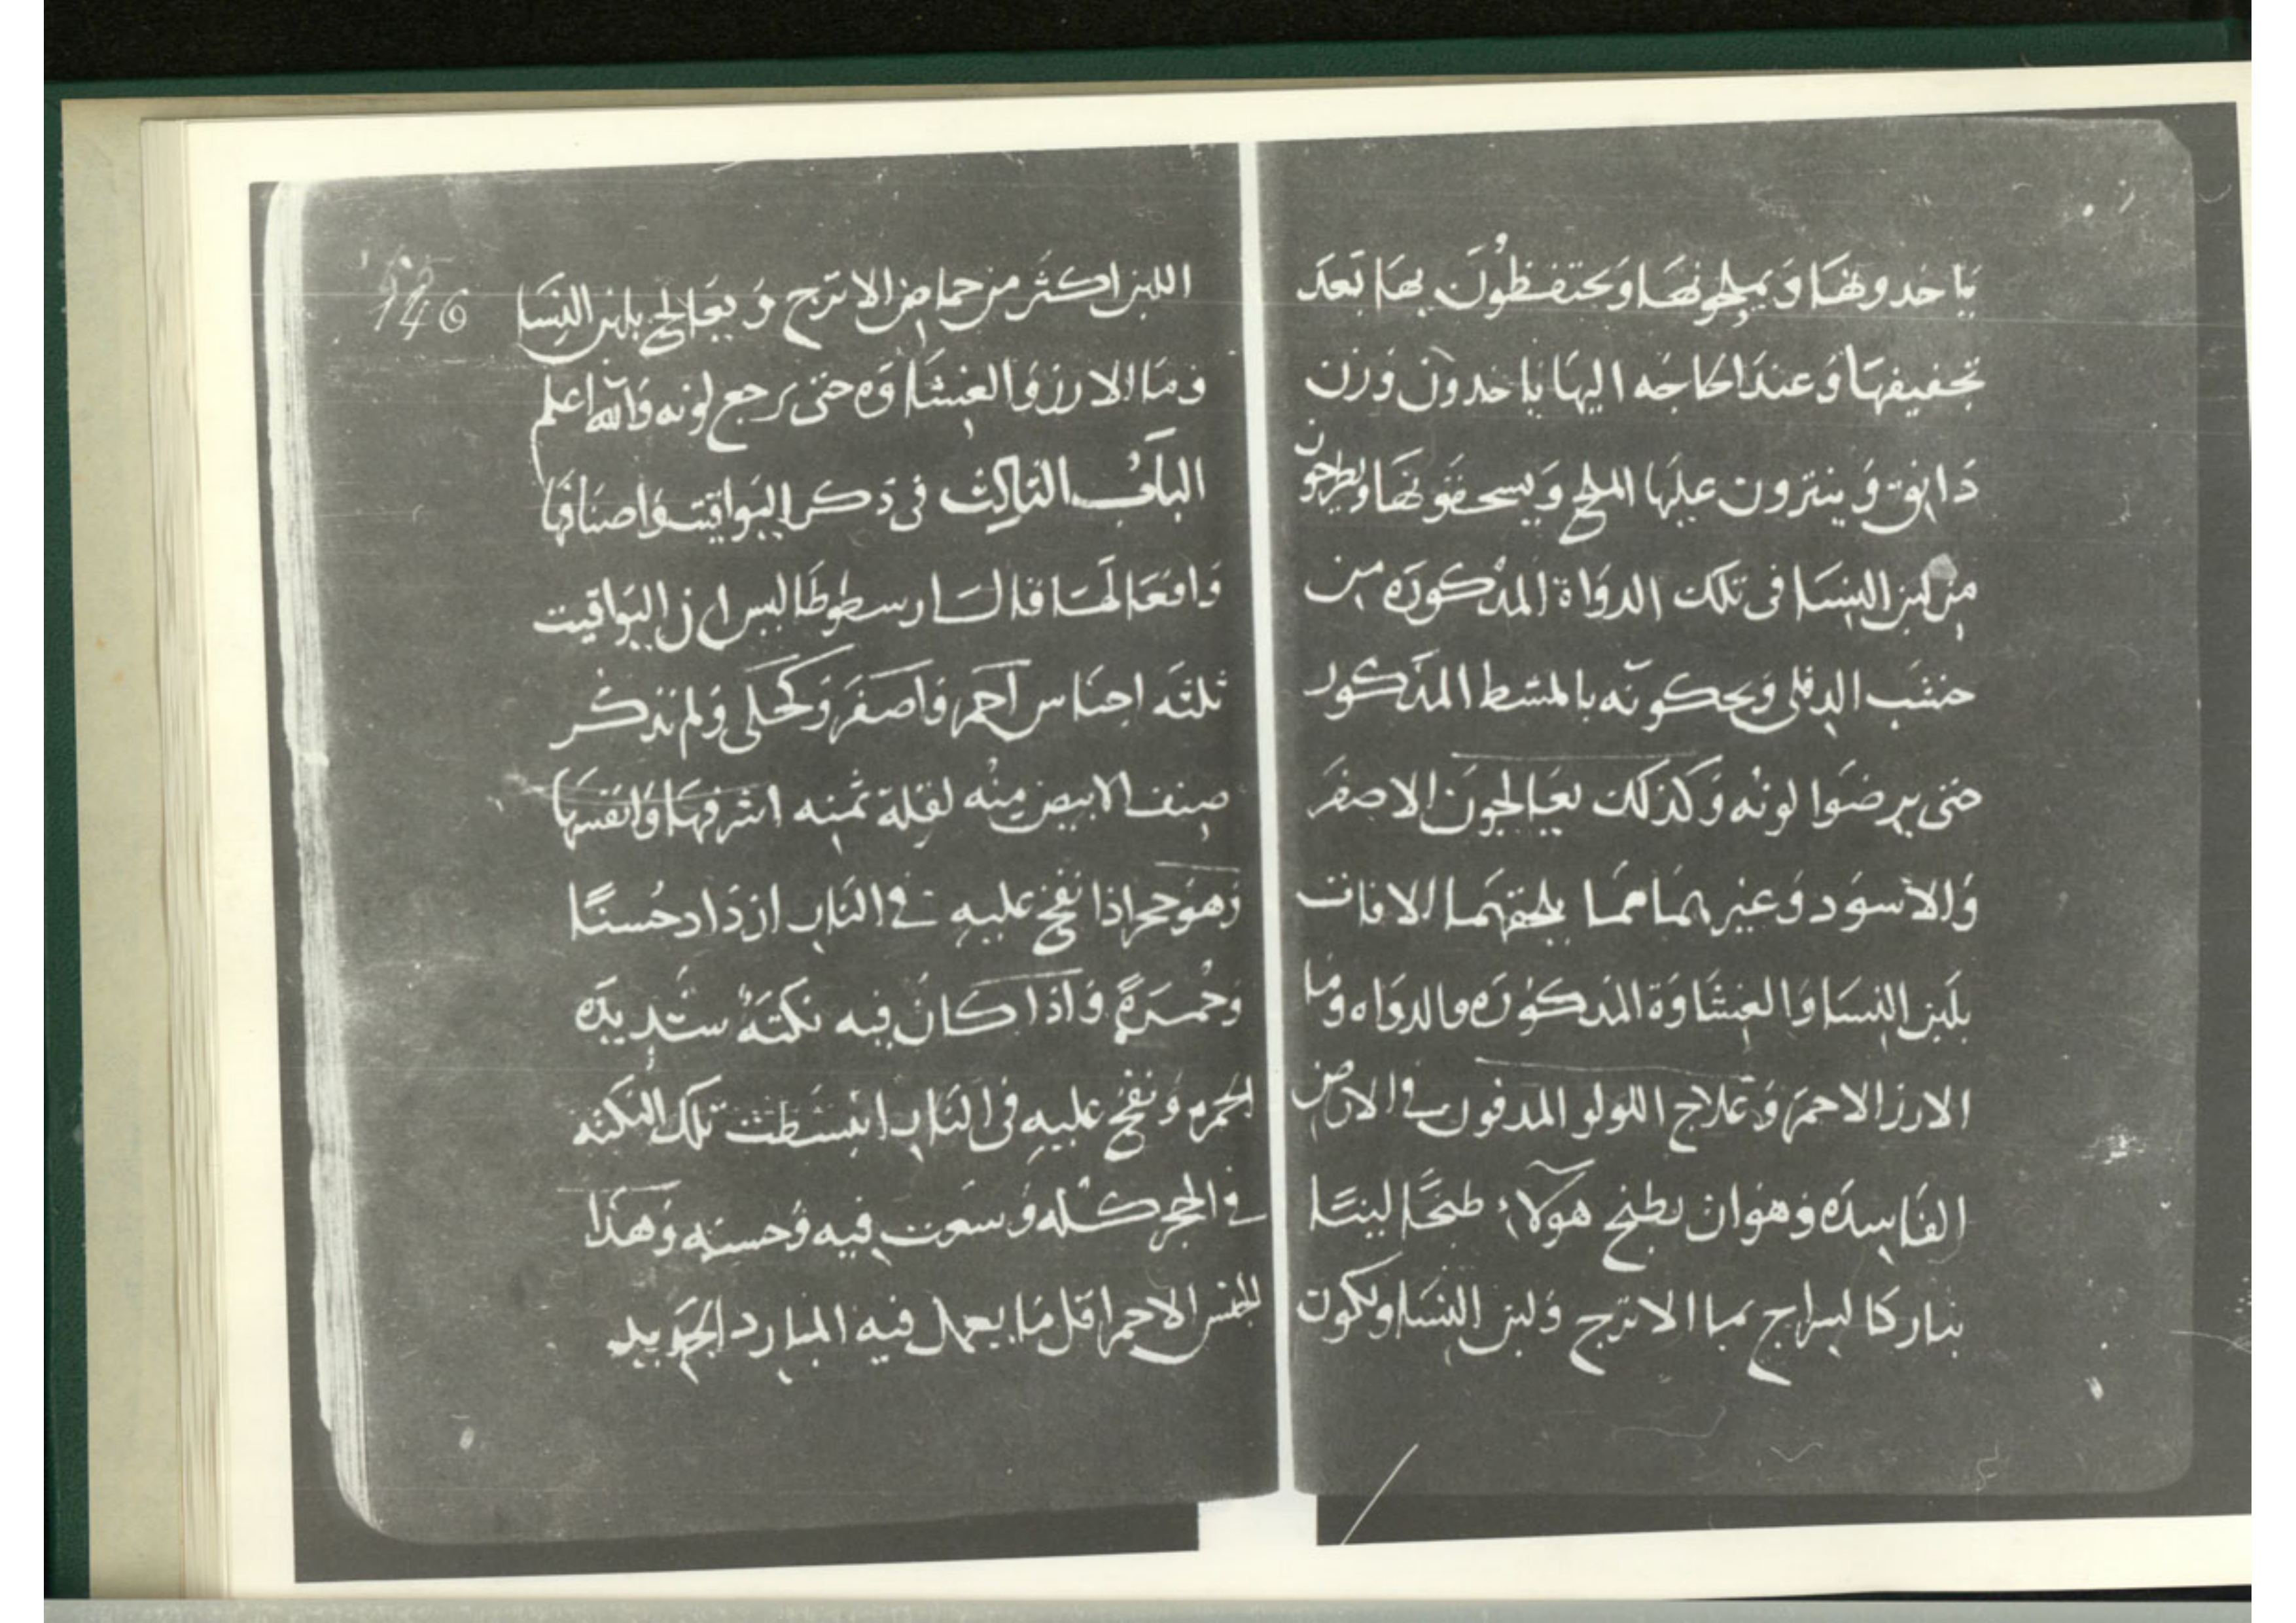 ياخدونها ويملحونها ويحتفظون بها بعد
تجفيفها وعند الحاجه اليها ياخدون وزن
دانق وينترون عليها الملح ويسحقونها ويطرحون
من لبن النسا فى تلك الدواة المذكوره من
خشب الدفلى ويحكونه بالمشط المذكور
حتى يرضوا لونه وكذلك يعالجون الاصفر
والاسود وغيرهما مما يلحقهما الافات
بلبن النسا والغشاوة المذكوره والدواه وما
الارز الاحمر وعلاج اللولو المدفون في الارض
الفاسده وهو ان يطبخ هولاء طبخا لينا
بنار كالسراج بما الاترج ولبن النسا ويكون
146
اللبن اكثر من حماض الاترج ويعالج بلبن النسا
وما الارز والغشاوه حتى يرجع لونه والله اعلم
الباب الثالث فى ذكر اليواقيت واصنافها
وافعالها قال ارسطوطاليس ان اليواقيت
ثلثه اجناس احمر واصفر وكحلى ولم نذكر
صنف الابيض منه لقلة ثمنه اشرفها وانفسها
وهو حجر اذا نفخ عليه في النار ازداد حسنا
وحمرة واذا كان فيه نكتة شديده
الحمره ونفخ عليه فى النار انبسطت تلك النكته
في الحجر كله وسعت فيه وحسنه وهذا
الجنس الاحمر اقل ما يعمل فيه المبارد الحديد